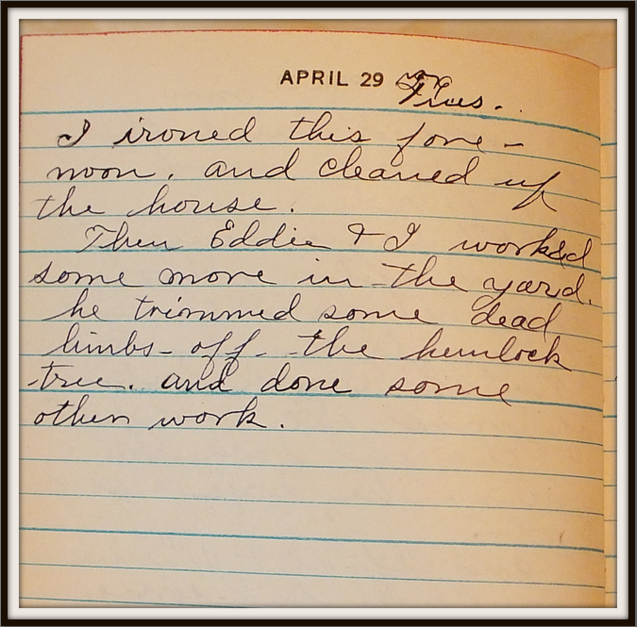 APRIL 29 Tues.
I ironed this fore-
noon. and cleaned up
the house.
Then Eddie & I worked
some more in the yard.
he trimmed some dead
limbs off the hemlock
tree. and done some
other work.